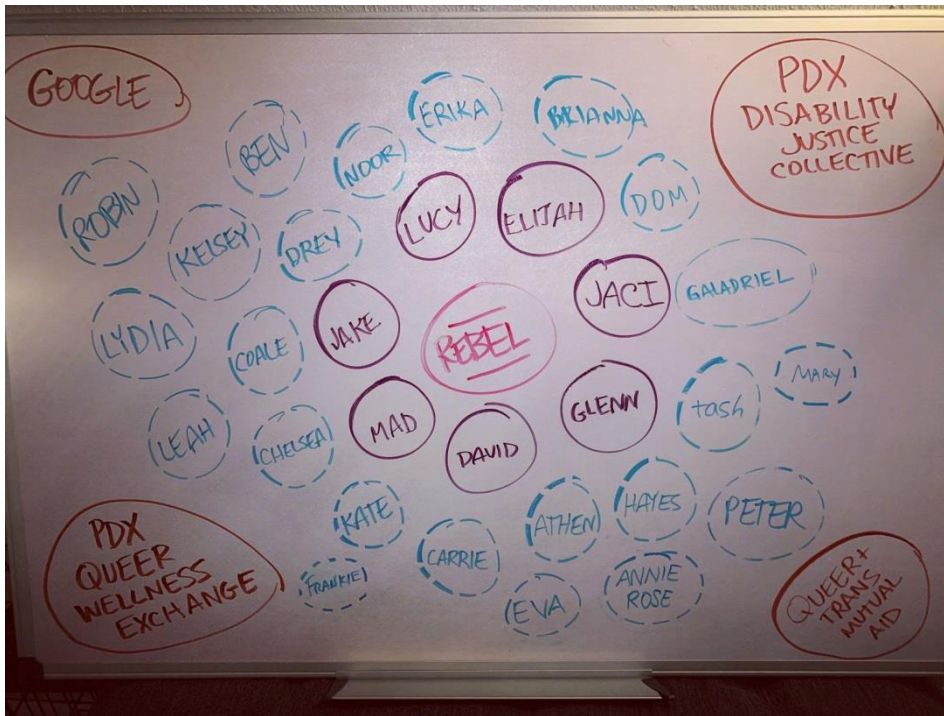 GOOGLE
PDX
DISABILITY
JUSTICE
COLLECTIVE
ERIKA
BRIANNA
BEN
NOOR
ROBIN
LUCY
ELIJAH
DOM
KELSEY
DREY
JACI
GALADRIEL
LYDIA
COALE
JAKE
REBEL
MARY
LEAH
CHELSEA
MAD
DAVID
GLENN
tash
KATE
ATHEN
HAYES
PETER
CARRIE
FRANKIE
EVA
ANNIE
ROSE
PDX
QUEER
WELLNESS
EXCHANGE
QUEER+
TRANS
MUTUAL
AID